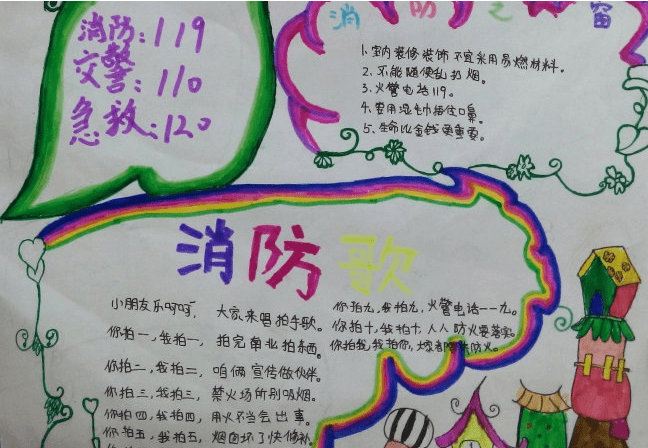 消防:119
交警:110
急救:120
消防之窗
1.室内装修装饰不宜采用易燃材料。
2.不能随便乱扔烟。
3.火警电话119。
4.要用湿毛巾捂住口鼻。
5.生命比金钱更重要。
消防歌
小朋友乐呵呵, 大家来唱拍手歌。
你拍一,我拍一, 拍完单业拍东西。
你拍二,我拍二, 咱俩宣传做伙伴。
你拍三,我拍三, 禁火场所别吸烟。
你拍四,我拍四, 用火不当会出事。
你拍五,我拍五, 烟囱坏了快修补
你拍九,我拍九,火警电话一一九。
你拍十,我拍十,人人防火要落实。
你拍我,我拍你,大家都防火。